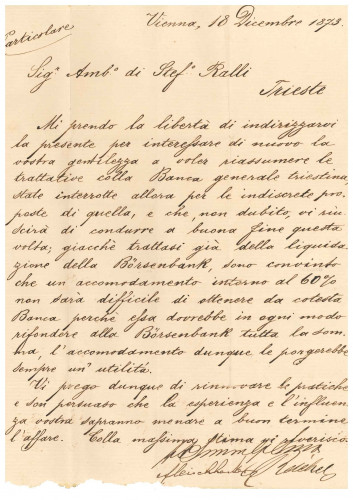 Particolare
Vienna, 18 Dicembre 1873.
Sigʳ Ambº di Stefº Ralli
Trieste
Mi prendo la libertà di indirizzarvi
la presente per interessare di nuovo la
vostra gentilezza a voler riassumere le
trattative colla Banca generale triestina,
state interrotte allora per le indiscrete pro,
poste di quella, e che, non dubito, vi riu,
scirà di condurre a buona fine questa
volta, giacchè trattasi già della liquida,
zione della Börsenbank, sono convinto
che un accomodamento intorno al 60%
non sarà difficile di ottenere da cotesta
Banca perchè essa dovrebbe in ogni modo
rifondere alla Börsenbank tutta la som,
ma, l'accomodamento dunque le porgerebbe
sempre un' utilità.
Vi prego dunque di rinnovare le pratiche
e son persuaso che la esperienza e l'influen,
za vostra sapranno menare a buon termine
l'affare. Colla massima stima vi riverisco